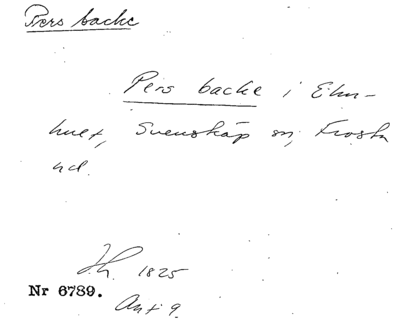 Pers backe
Pers backe i Elm-
huet, Svensköp sn, Frosta
hd.
1825
Nr 6789.